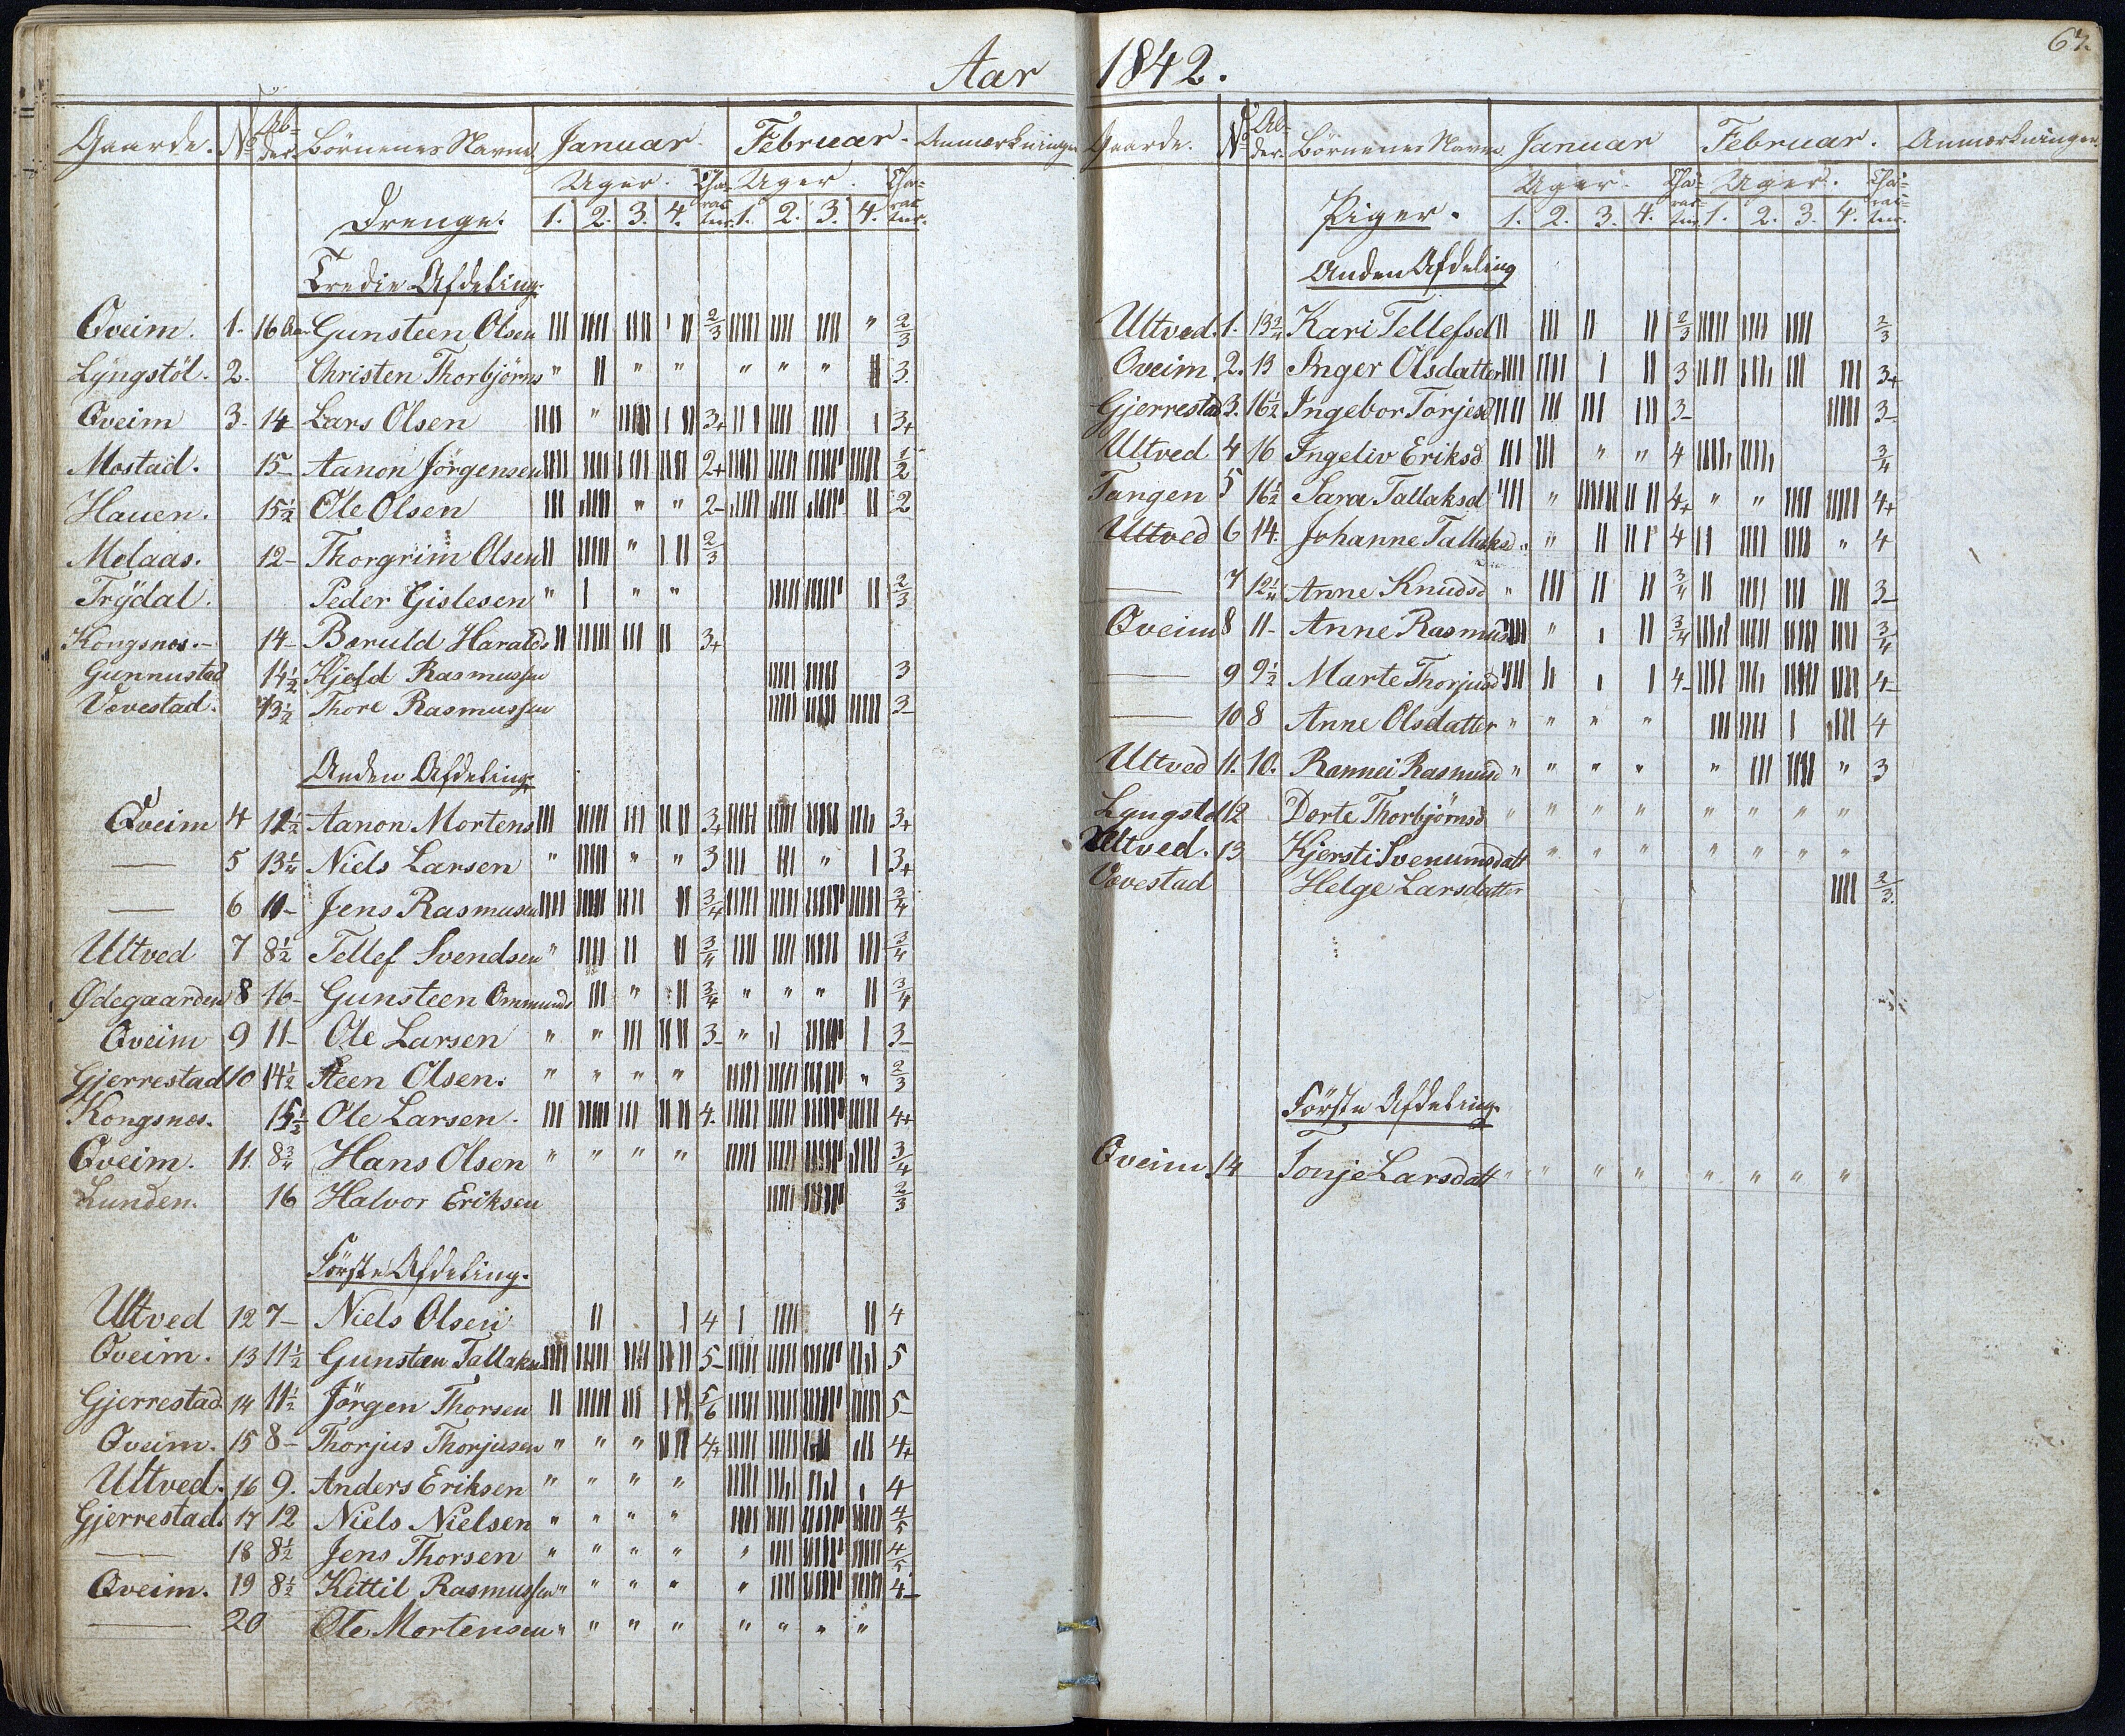 Aar 1842.
67.
Gaarde. No Al-der Börnenes Navne Januar. Februar. Anmærkninger
Uger. Cha-rac-ter. Uger. Cha-rac-ter.
Drenge. 1. 2. 3. 4. 1. 2. 3. 4.
Tredie Afdeling.
Qveim. 1. 16 Aar Gunsteen Olsen 2/3 " 2/3
Lyngstöl. 2. Christen Thorbjörns " " " " " " 3.
Qveim 3. 14 Lars Olsen " 3+ 3+
Mostad. 15- Aanon Jörgensen 2+ 1/2
Hauen. 15½ Ole Olsen " " 2- 2
Molaas. 12- Thorgrim Olsen " 2/3
Trydal. Peder Gislesen " " " 2/3
Kongsnes.- 14- Boruld Haralds 3+
Gunnustad 14½ Kjeld Rasmussen 3
Vevestad. 13½ Thore Rasmussen 3-
Anden Afdeling.
Qveim 4 12½ Aanon Mortens 3+ 3+
— 5 13¼ Niels Larsen " " " 3 " 3+
— 6 11- Jens Rasmusen 3/4 3/4
Ultved 7 8½ Tellef Svendsen " 3/4 3/4
Ødegaarden 8 16- Gunsteen Ommunds " 3/4 " " " 3/4
Qveim 9 11- Ole Larsen " " 3- " 3-
Gjerrestad 10 14½ Steen Olsen. " " " " " 2/3
Kongsnes. 15½ Ole Larsen. 4. 4+
Qveim. 11. 8¾ Hans Olsen " " " " 3/4
Lunden. 16 Halvor Eriksen 2/3
Förste Afdeling.
Ultved 12 7- Niels Olsen 4 4
Qveim. 13 11½ Gunsten Tallaksn 5- 5
Gjerrestad. 14 11½ Jörgen Thorsen 5/6 5-
Qveim. 15 8- Thorjus Thorjusen " " " 4+ 4+
Ultved. 16 9. Anders Eriksen " " " " 4
Gjerrestad. 17 12 Niels Nielsen " " " " 4/5
— 18 8½ Jens Thorsen " " " " " 4/5
Qveim. 19 8½ Kittil Rasmussen " " " " " 4-
— 20 Ole Mortensen " " " " " " " "
Gaarde. No Al-der. Börnenes Navne Januar Februar. Anmærkninger
Uger. Cha-rac-ter. Uger. Cha-rac-ter.
Piger. 1. 2. 3. 4. 1. 2. 3. 4.
Anden Afdeling
Ultved. 1. 13¾ Kari Tellefsd 2/3 2/3
Qveim. 2. 13 Inger Olsdatter 3 3+
Gjerrestad 3. 16½ Ingebor Torjesd 3- 3-
Ultved 4 16 Ingeliv Eriksd " " 4 3/4
Tangen 5 16½ Sara Tallaksd " 4+ " " 4+
Ultved 6 14. Johanne Tallaksd " " 4 " 4
— 7 12¼ Anne Knudsd " 3/4 3-
Qveim 8 11- Anne Rasmusd " 3/4 3/4
— 9 9½ Marte Thorjusd 4- 4-
— 10 8 Anne Olsdatter " " " " 4
Ultved 11. 10. Rannei Rasmusd " " " " " " 3
Lyngstöl 12 Dorte Thorbjörnsd " " " " " " " "
Ultved. 13 Kjersti Svenumsdatt " " " " " " "
Vevestad Helge Larsdatter 2/3.
Förste Afdeling.
Qveim 14 Tonje Larsdatt " " " " " " " "